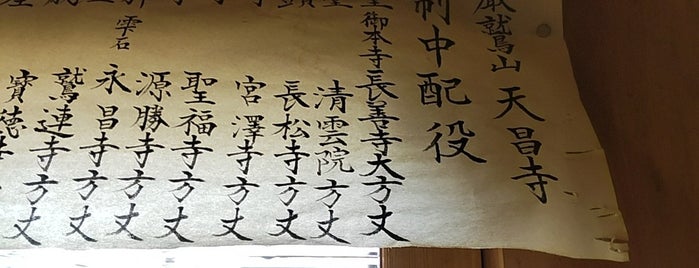 巌鷲山天昌寺
制中配役
御本寺長善寺大方丈
清雲院方丈
長松寺方丈
宮澤寺方丈
聖福寺方丈
源勝寺方丈
雫石永昌寺方丈
鷲連寺方丈
寳德